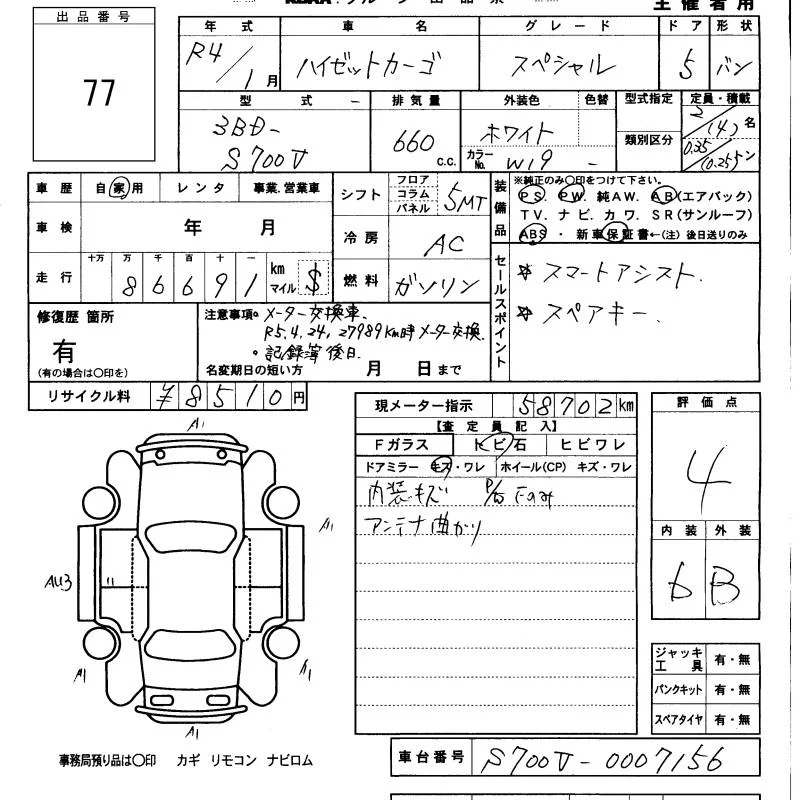 主催者用
出品番号
77
年式 車名 グレード ドア 形状
R4/1月 ハイゼットカーゴ スペシャル 5 バン
型式 排気量 外装色 色替 型式指定 定員・積載
3BD- 660 c.c. ホワイト 2/(4)名
S700V カラーNo. W19 - 類別区分 0.35/(0.25)トン
車歴 自家用 レンタ 事業.営業車
シフト フロア コラム パネル 5MT
装備品 ※純正のみ○印をつけて下さい。
PS. PW. 純AW. AB(エアバック)
TV. ナビ. カワ. SR(サンルーフ)
ABS ・ 新車保証書←(注) 後日送りのみ
車検 年 月
冷房 AC
走行 十万 万 千 百 十 一
86691 km マイル $
燃料 ガソリン
セールスポイント
☆ スマートアシスト.
☆ スペアキー.
修復歴 箇所
有
(有の場合は○印を)
注意事項。メーター交換車.
R5.4.24, 27989km時メーター交換.
。記録簿後日.
名変期日の短い方 月 日まで
リサイクル料 ¥8510円
現メーター指示 58702km
【査定員記入】
Fガラス トビ石 ヒビワレ
ドアミラー キズ・ワレ ホイール(CP) キズ・ワレ
内装キズ
アンテナ曲がり
評価点
4
内装 外装
6 B
A1
A1
AU3
A1
A1
A1
ジャッキ工具 有・無
パンクキット 有・無
スペアタイヤ 有・無
事務局預り品は○印 カギ リモコン ナビロム
車台番号 S700V-0007156